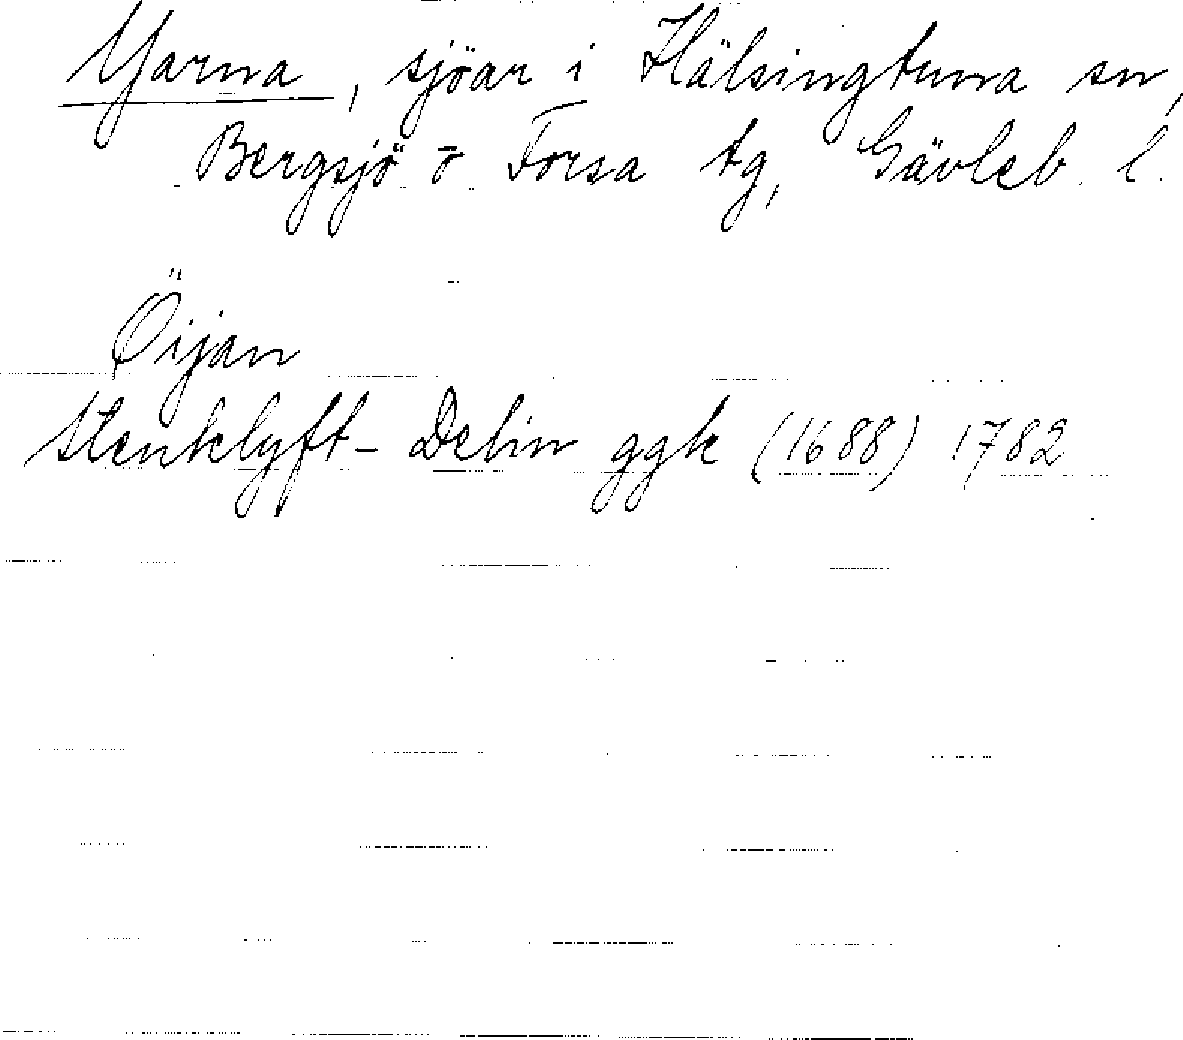 Yarna, sjöar i Hälsingtuna sn,
Bergsjö o Forsa tg, Gävleb. l.
Öijan
Stenklyft-Delin ggk (1688) 1782